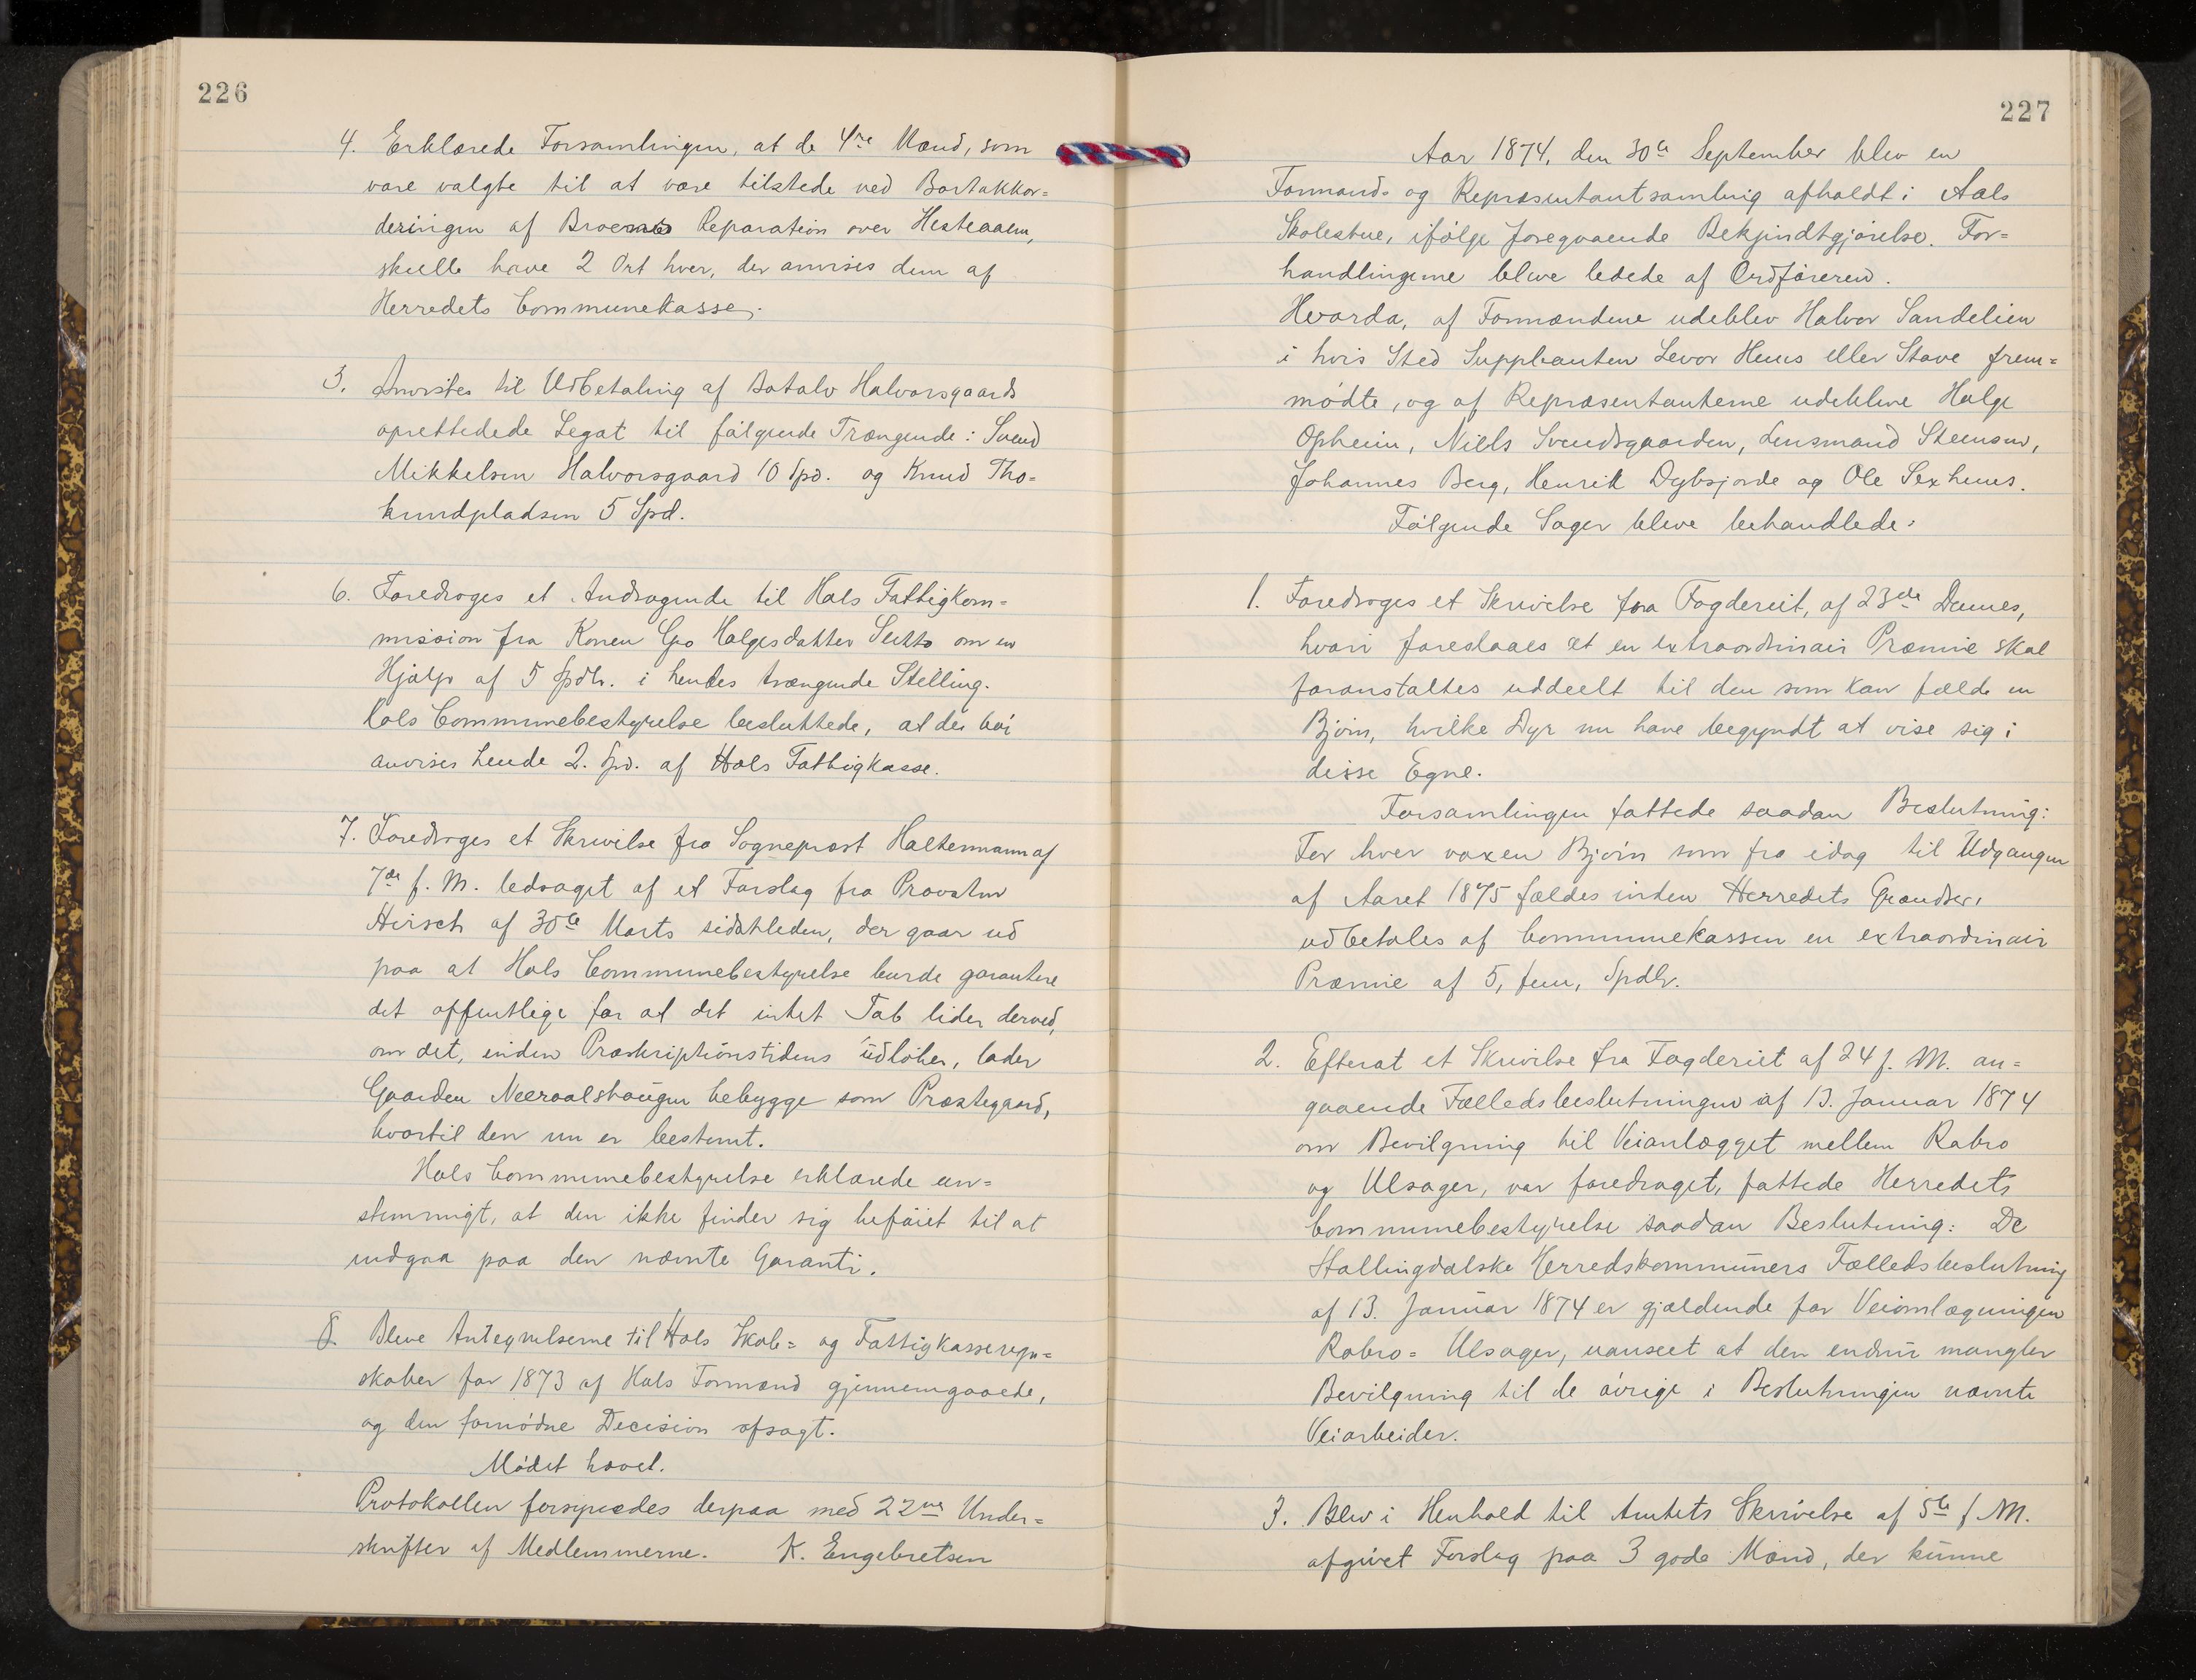 226
4. Erklærede Forsamlingen, at de 4re Mænd, som
vare valgte til at være tilstede ved Bortakkor=
deringen af Broernes Reparation over Hesteaaen,
skulle have 2 Ort hver, der anvises dem af
Herredets Communekasse.
3. Anvistes til Udbetaling af Botolv Halvorsgaards
oprettedede Legat til følgende Trængende: Svend
Mikkelsen Halvorsgaard 10 Spd. og Knud Tho=
kundpladsen 5 Spd.
6. Foredroges et Andragende til Hols Fattigkom=
mission fra Konen Gro Holgesdatter om en
Hjælp af 5 Spdlr. i hendes trængende Stilling.
Hols Communebestyrelse besluttede, at der bør
anvises hende 2. Spd. af Hols Fattigkasse.
7. Foredroges et Skrivelse fra Sogneprest Haltermann af
7de f. M. ledsaget af et Forslag fra Provsten
Hirsch af 30te Marts sidstleden, der gaar ud
paa at Hols Communebestyrelse burde garantere
det offentlige for at det intet Tab lider derved,
om det, inden Præskriptionstidens udløber, lader
Gaarden Neeraalshaugen bebygge som Præstegaard,
hvortil den nu er bestemt.
Hols Communebestyrelse erklærede een=
stemmigt, at den ikke finder sig beføiet til at
indgaa paa den nævnte Garanti.
8. Bleve Antegnelserne til Hols Skole= og Fattigkasseregn=
skaber for 1873 af Hols Formænd gjennemgaaede,
og den fornødne Decision afsagt.
Mødet hævet.
Protokollen forsynedes derpaa med 22 Under=
skrifter af Medlemmerne. K. Engebretsen
227
Aar 1874, den 30te September blev en
Formands og Repræsentantsamling afholdt i Aals
Skolestue, ifølge foregaaende Bekjendtgjørelse. For=
handlingerne bleve ledede af Ordføreren.
Hvorda, af Formændene udeblev Halvor Sandelien
i hvis Sted Suppleanten Levor Heus eller Stave frem=
mødte, og af Repræsentanterne udebleve Holge
Opheim, Niels Svendsgaarden, Lensmand Steensen,
Johannes Berg, Henrik Dybsjorde og Ole Sexheus.
Følgende Sager bleve behandlede:
1. Foredroges et Skrivelse fra Fogderiet, af 23de Dennes,
hvori foreslaaes at en extraordinair Præmie skal
foranstaltes uddeelt til den som kan fælde en
Bjørn, hvilke Dyr nu have begyndt at vise sig i
disse Egne.
Forsamlingen fattede saadan Beslutning:
For hver voxen Bjørn som fra idag til Udgangen
af Aaret 1875 fældes inden Herredets Grændser,
udbetales af Communekassen en extraordinair
Præmie af 5, fem, Spdlr.
2. Efterat et Skrivelse fra Fogderiet af 24 f. M. an=
gaaende Fælledsbeslutningen af 13. Januar 1874
om Bevilgning til Veianlægget mellem Robro
og Ulsager, var foredraget, fattede Herredets
Communebestyrelse saadan Beslutning: De
Hallingdalske Herredskommuners Fælledsbeslutning
af 13. Januar 1874 er gjældende for Veiomlægningen
Robro= Ulsager, uanseet at den endnu mangler
Bevilgning til de øvrige i Beslutningen nævnte
Veiarbeider.
3. Blev i Henhold til Amtets Skrivelse af 5te f. M.
afgivet Forslag paa 3 gode Mænd, der kunne